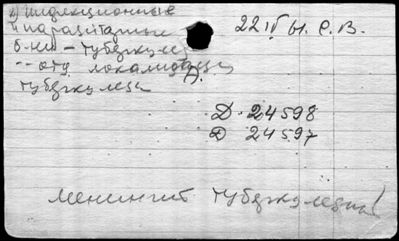 инфекционные
и паразитарные
б-ни – туберкулез
22 IV ы. С. В.
-- отд локализации
туберкулеза
Д. 24598
Д 24597
менингит туберкулезный